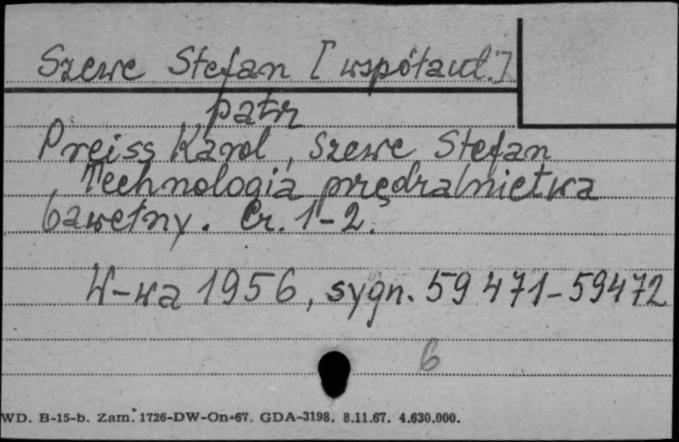 Szewc Stefan [współaut.]
patrz
Preiss Karol, Szewc Stefan
Technologia przędzalnictwa
bawełny. Cz. 1-2.
W-wa 1956, sygn. 59471-59472
6
WD. B-15-b. Zam. 1726-DW-On-67. GDA-3198. 8.11.67. 4.630.000.